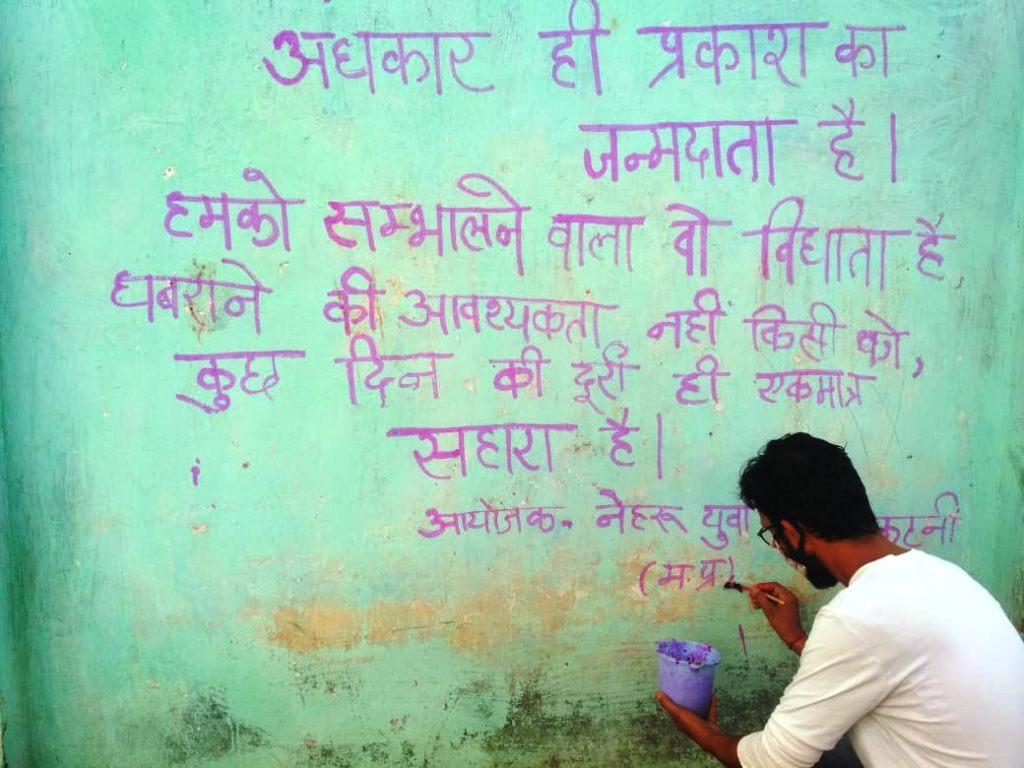 अंधकार ही प्रकाश का
जन्मदाता है।
हमको सम्भालने वाला वो विधाता है,
घबराने की आवश्यकता नहीं किसी को,
कुछ दिन की दूरी ही एकमात्र
सहारा है।
आयोजक- नेहरू युवा कटनी
(म.प्र)